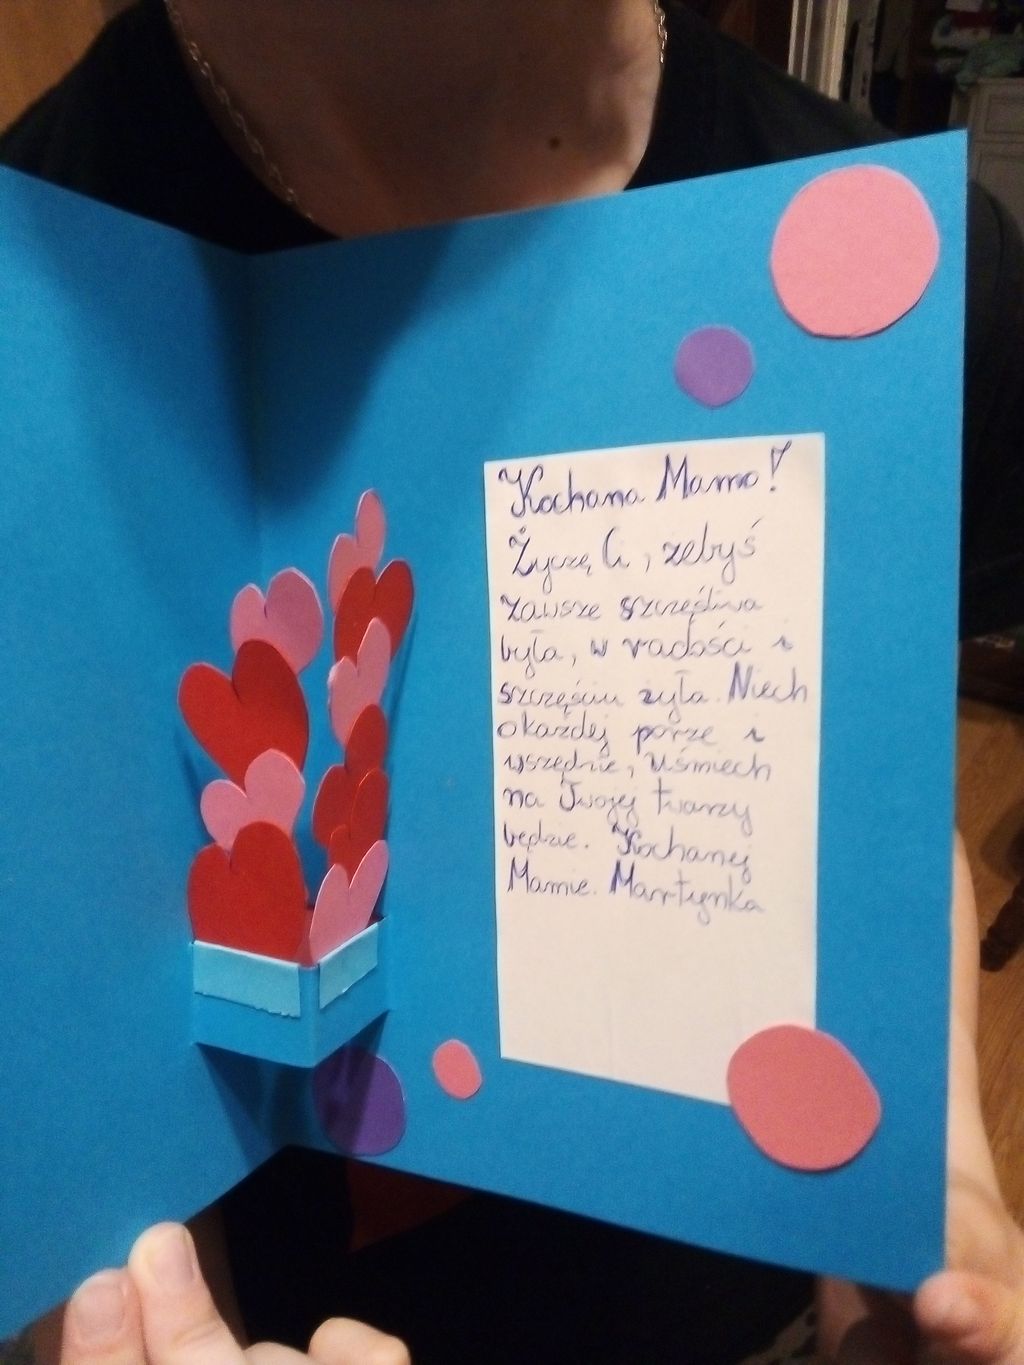 Kochana Mamo!
Życzę Ci, żebyś
zawsze szczęśliwa
była, w radości i
szczęściu żyła. Niech
okażdej porze i
wszędzie, uśmiech
na Twojej twarzy
będzie. Kochanej
Mamie. Martynka